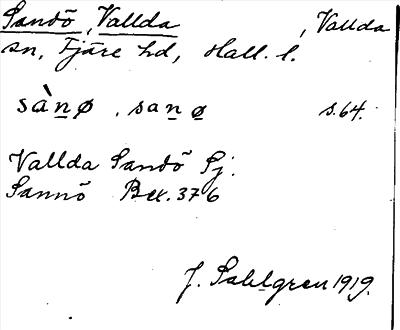 Sandö, Vallda, Vallda
sn, Fjäre hd, Hall. l.
sàn̲ø . san̲ ø̲ s.64.
Vallda Sandö Sj.
Sannö Bex. 376
J. Sahlgren 1919.